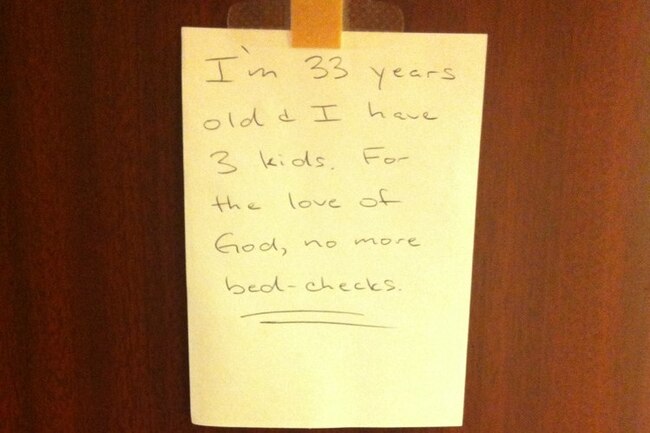 I'm 33 years
old & I have
3 kids. For
the love of
God, no more
bed-checks.